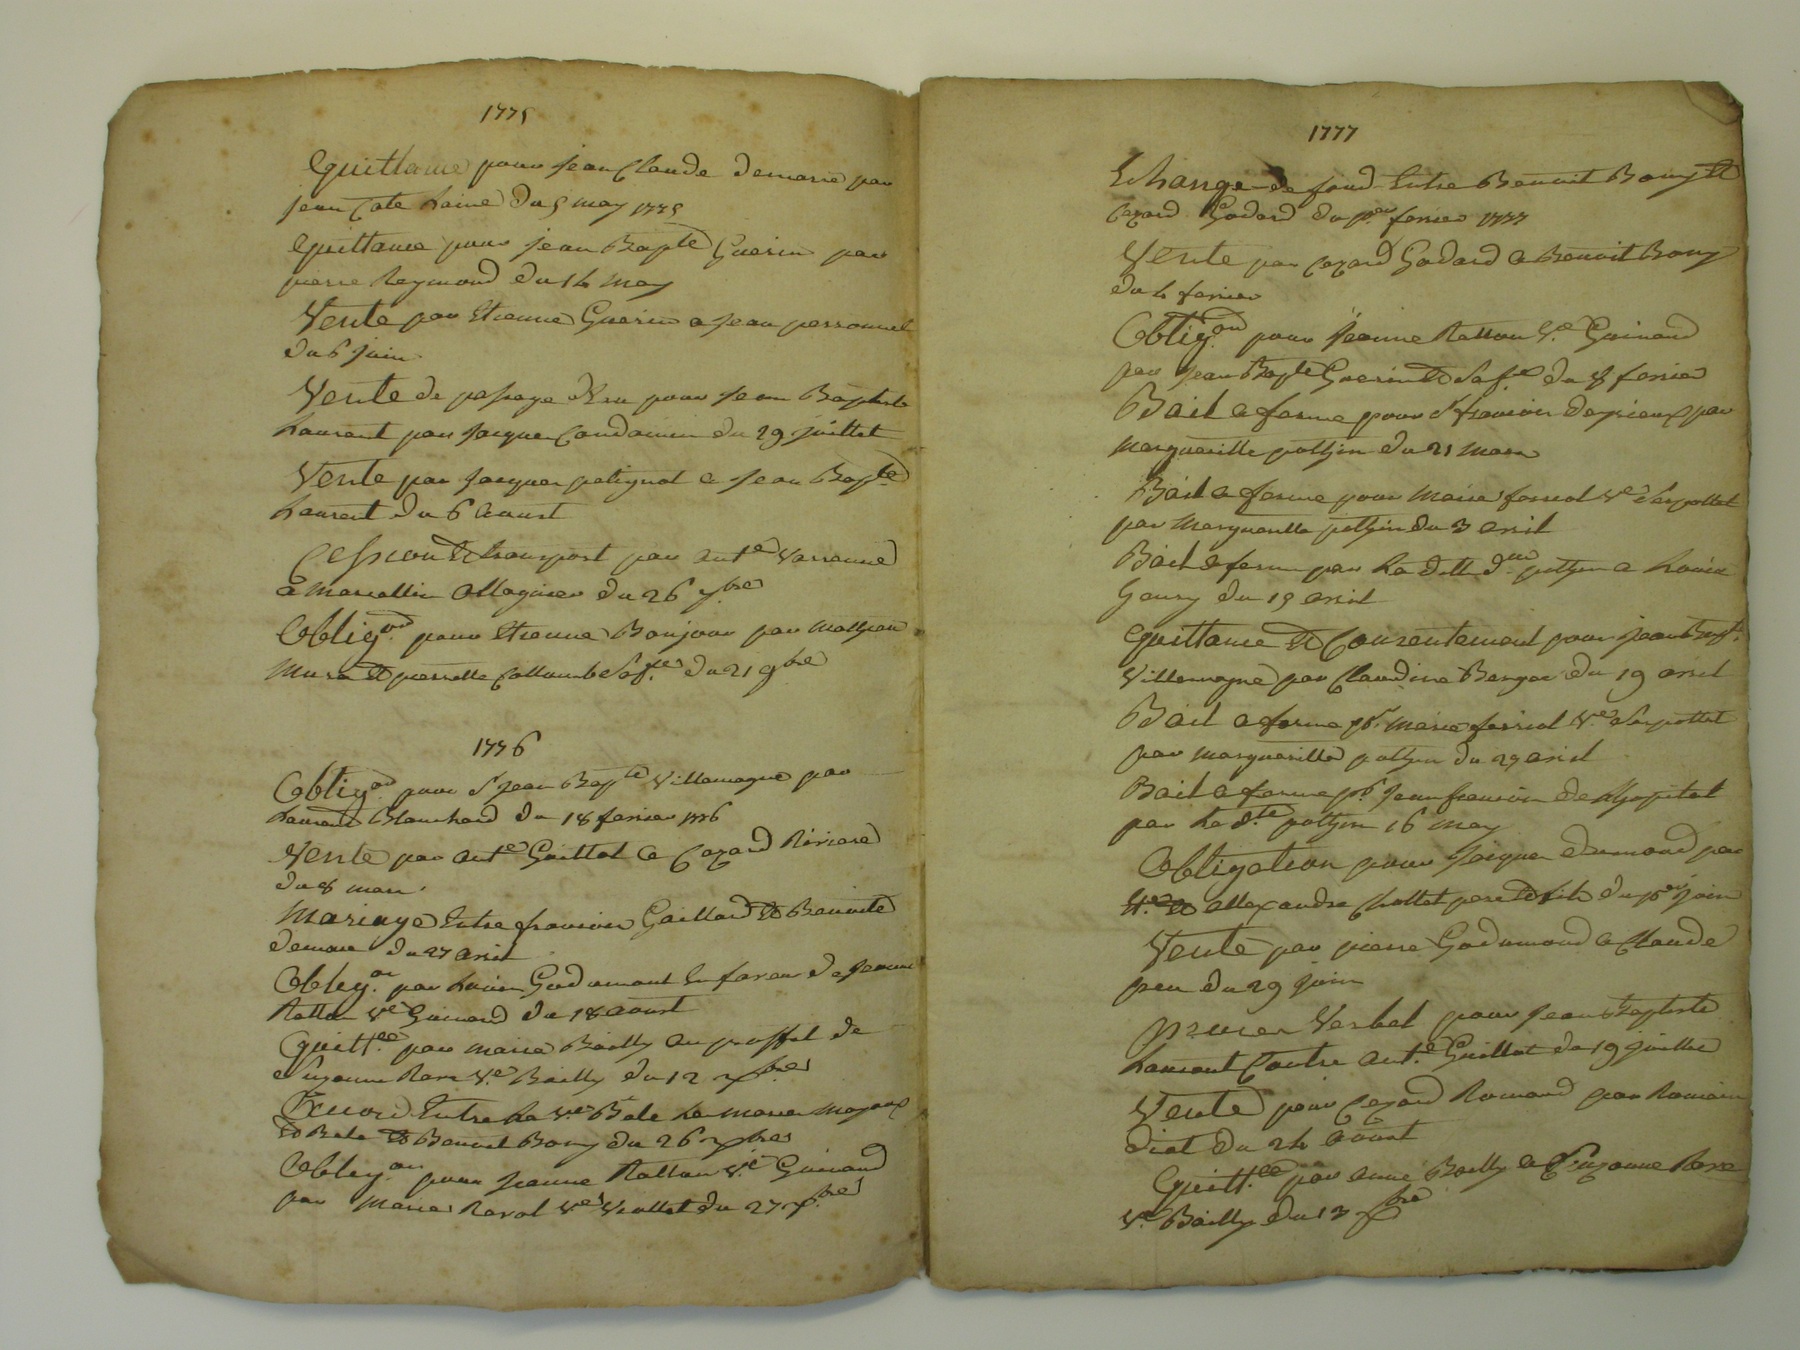 1775
Quittance pour jean Claude demare par
jean Cote Lainé du 5 may 1775
Quittance pour jean Bapte Guerin par
pierre Reymond du 14 may
Vente par Etienne Guerin a jean personnel
du 6 juin
Vente de passage d'eau pour jean Baptiste
Laurent par jacques Condamin du 29 juillet
Vente par jacques petignot a jean Bapte
Laurent du 6 aoust
Cession et transport par ante Varenne
a Marcellin allagnier du 26 7bre
Obligon pour Etienne Bonjour par Mathieu
et pierrette Collombe Sa fe du 21 9bre
1776
Obligon pour Sr jean Bapte Villemagne par
Laurent Blanchard du 18 fevrier 1776
Vente par ante Guillot a Cezard Riviere
du 8 mars
Mariage Entre francois Gaillard et Benoite
demare du 27 avril
Obligon par Godumont En faveur de jeanne
Rattou ve Guinand du 18 aoust
Quittce par marie Bailly au proffet de
Suzanne Rave Ve Bailly du 12 xbre
Entre La ve Bale
et Bale et Benoit Bony du 26 xbre
Obligon pour jeanne Rattou ve Guinand
par Marie Ravol ve Viollet du 27 xbre
1777
Echange de fond Entre Benoit Bony et
Cezard Godard du per fevrier 1777
Vente par Cezard Godard a Benoit Bony
du 4 fevrier
Obligon pour jeanne Rattou Ve Guinand
par jean Bapte Guerin et Sa fe du 8 fevrier
Bail a ferme pour Sr francois par
Marguerite pothin du 21 mars
Bail a ferme pour Marie ferriol ve
par Marguerite pothin du 3 avril
Bail a ferme par La ditte dlle pothin a Louis
Gaury du 19 avril
Quittance et Consentement pour jean Bapte
Villemagne par Claudine Berger du 19 avril
Bail a ferme pr marie ferriol ve
par marguerite pothin du 29 avril
Bail a ferme pr jean francois de Lhopital
par La dte pothin 16 may
Obligation pour jacques dumond par
allexandre Chollet pere et fils du per juin
Vente par pierre Godumond a Claude
peu du 29 juin
procer Verbal pour jean Baptiste
Laurent Contre ante Guillot du 19 juillet
Vente pour Cezard Romand par Romain
diot du 24 aoust
Quittce par anne Bailly a Suzanne Rave
Ve Bailly du 13 xbre